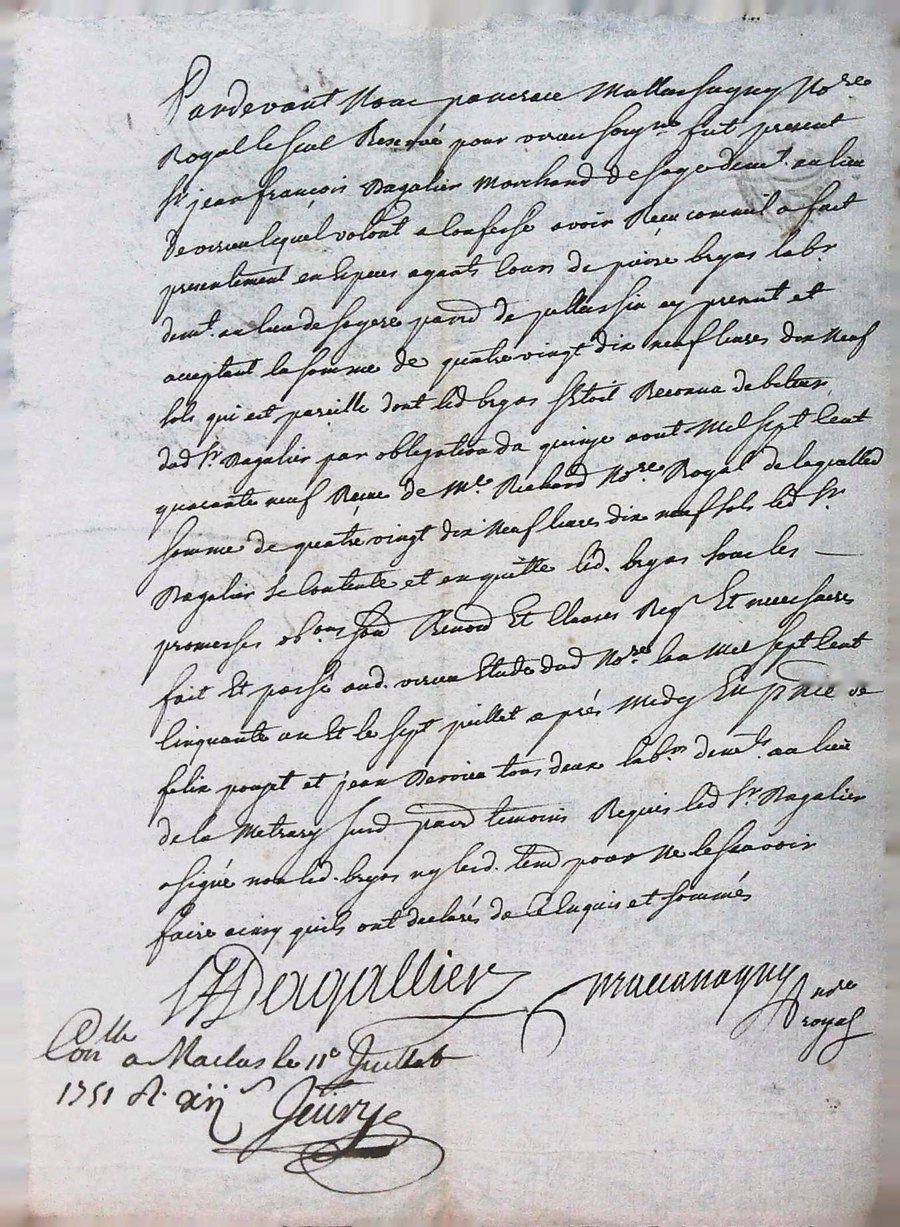 Pardevant Nous pancrace Mallassagny No.re
Royal le seul Reservé pour virieu sougné fut present
Sr jean françois Dagalier Marchand de soye demt. au lieu
de virieu lequel volont. a Confessé avoir Receu comme il a fait
presentement en especes ayants Cours de pierre bryas labr.
demt. au lieu de parr. de pellussin cy present et
acceptant la somme de quatre vingt dix neuf livres dix neuf
sols qui est pareille dont led bryas s'estoit Reconnu debiteur
dud Sr Dagalier par obligation du quinze aout Mil sept Cent
quarante neuf Reçue de Me. Richard No.re Royal de laquelle
somme de quatre vingt dix Neuf livres dix neuf sols led Sr.
Dagalier se Contente et en quitte led. bryas sous les
promesses obons. Renond Et Clauses Reqs Et necessaires
fait Et passé aud. virieu Etude dud No.re L'an Mil sept Cent
Cinquante un Et le sept juillet après Midy En pnce de
felix et jean tous deux labrs. demts. au lieu
de la susd parr temoins Requis led Sr. Dagalier
a signé non led. bryas ny lesd. tem. pour ne le scavoir
faire ainsy quils ont declarés de Ce Enquis et sommés
Dagallier
nore
royal
Conlle
a Maclas le 11e Juillet
1751 R.